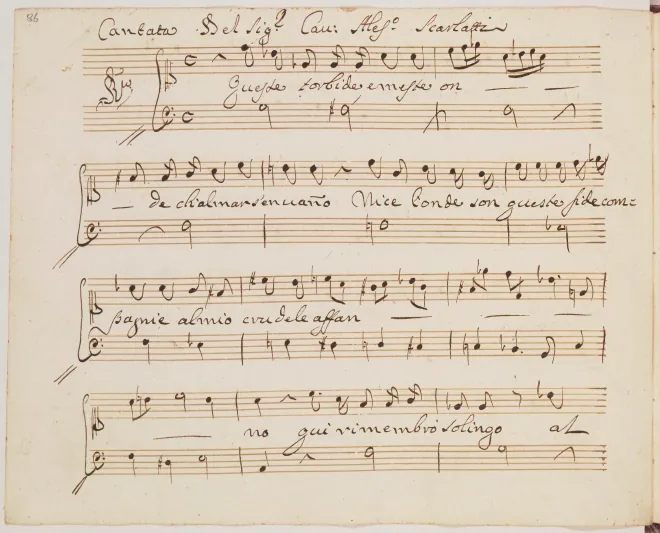 86
Cantata Del Sig.r Cau: Aless.o Scarlatti
Queste torbide e meste on
de ch'al mar sen uaño Nice l'onde son queste fide com=
pagnie al mio crudele affan
no qui rimembrò solingo al